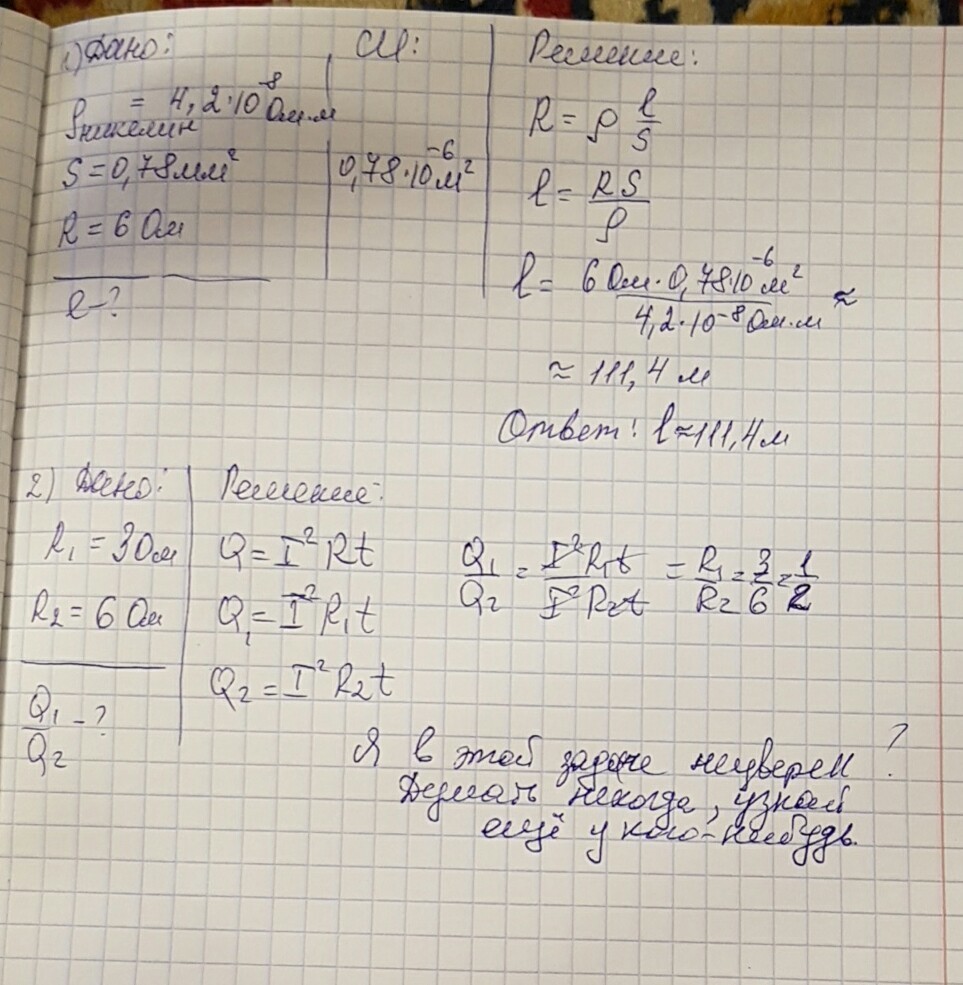 1) Дано:
СИ:
Решение:
ρникелин = 4,2·10⁻⁸ Ом·м
S = 0,78 мм²
0,78·10⁻⁶ м²
R = 6 Ом
l - ?
R = ρ l/S
l = RS/ρ
l = 6 Ом · 0,78·10⁻⁶ м² / 4,2·10⁻⁸ Ом·м ≈
≈ 111,4 м
Ответ: l ≈ 111,4 м
2) Дано:
Решение:
R₁ = 3 Ом
R₂ = 6 Ом
Q₁/Q₂ - ?
Q = I² Rt
Q₁ = I² R₁t
Q₂ = I² R₂t
Q₁/Q₂ = I²R₁t/I²R₂t = R₁/R₂ = 3/6 = 1/2
Я в этой задаче неуверен ?
Думать некогда, узнай
ещё у кого-нибудь.